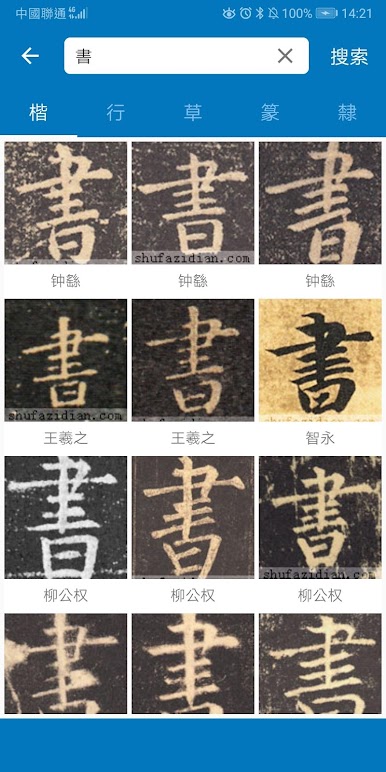 中國聯通 4G 100% 14:21
書 搜索
楷 行 草 篆 隸
書 書 書
shufazidian.com
钟繇 钟繇 钟繇
書 書 書
shufazidian.com
王羲之 王羲之 智永
書 書 書
柳公权 柳公权 柳公权
書 書 書